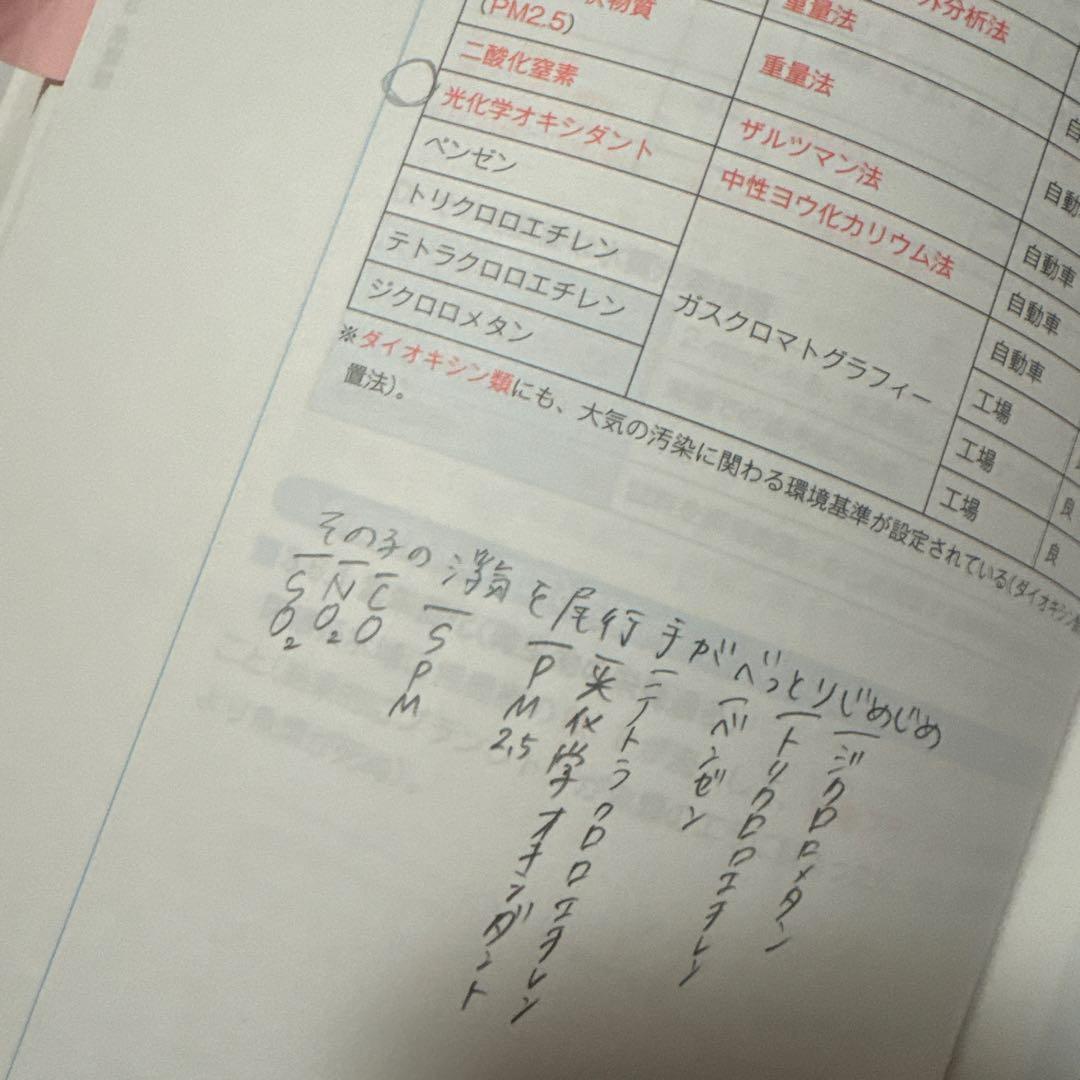 物質
(PM2.5)
重量法
外分析法
二酸化窒素
重量法
光化学オキシダント
ザルツマン法
自動
ベンゼン
中性ヨウ化カリウム法
自動車
トリクロロエチレン
自動車
テトラクロロエチレン
ガスクロマトグラフィー
自動車
ジクロロメタン
工場
工場
工場
良
良
※ダイオキシン類にも、大気の汚染に関わる環境基準が設定されている(ダイオキシン
置法)。
その子の 気を尾行 手がべっとりじめじめ
SO2
NO2
CO
SPM
PM2.5
光化学オキシダント
テトラクロロエチレン
ベンゼン
トリクロロエチレン
ジクロロメタン